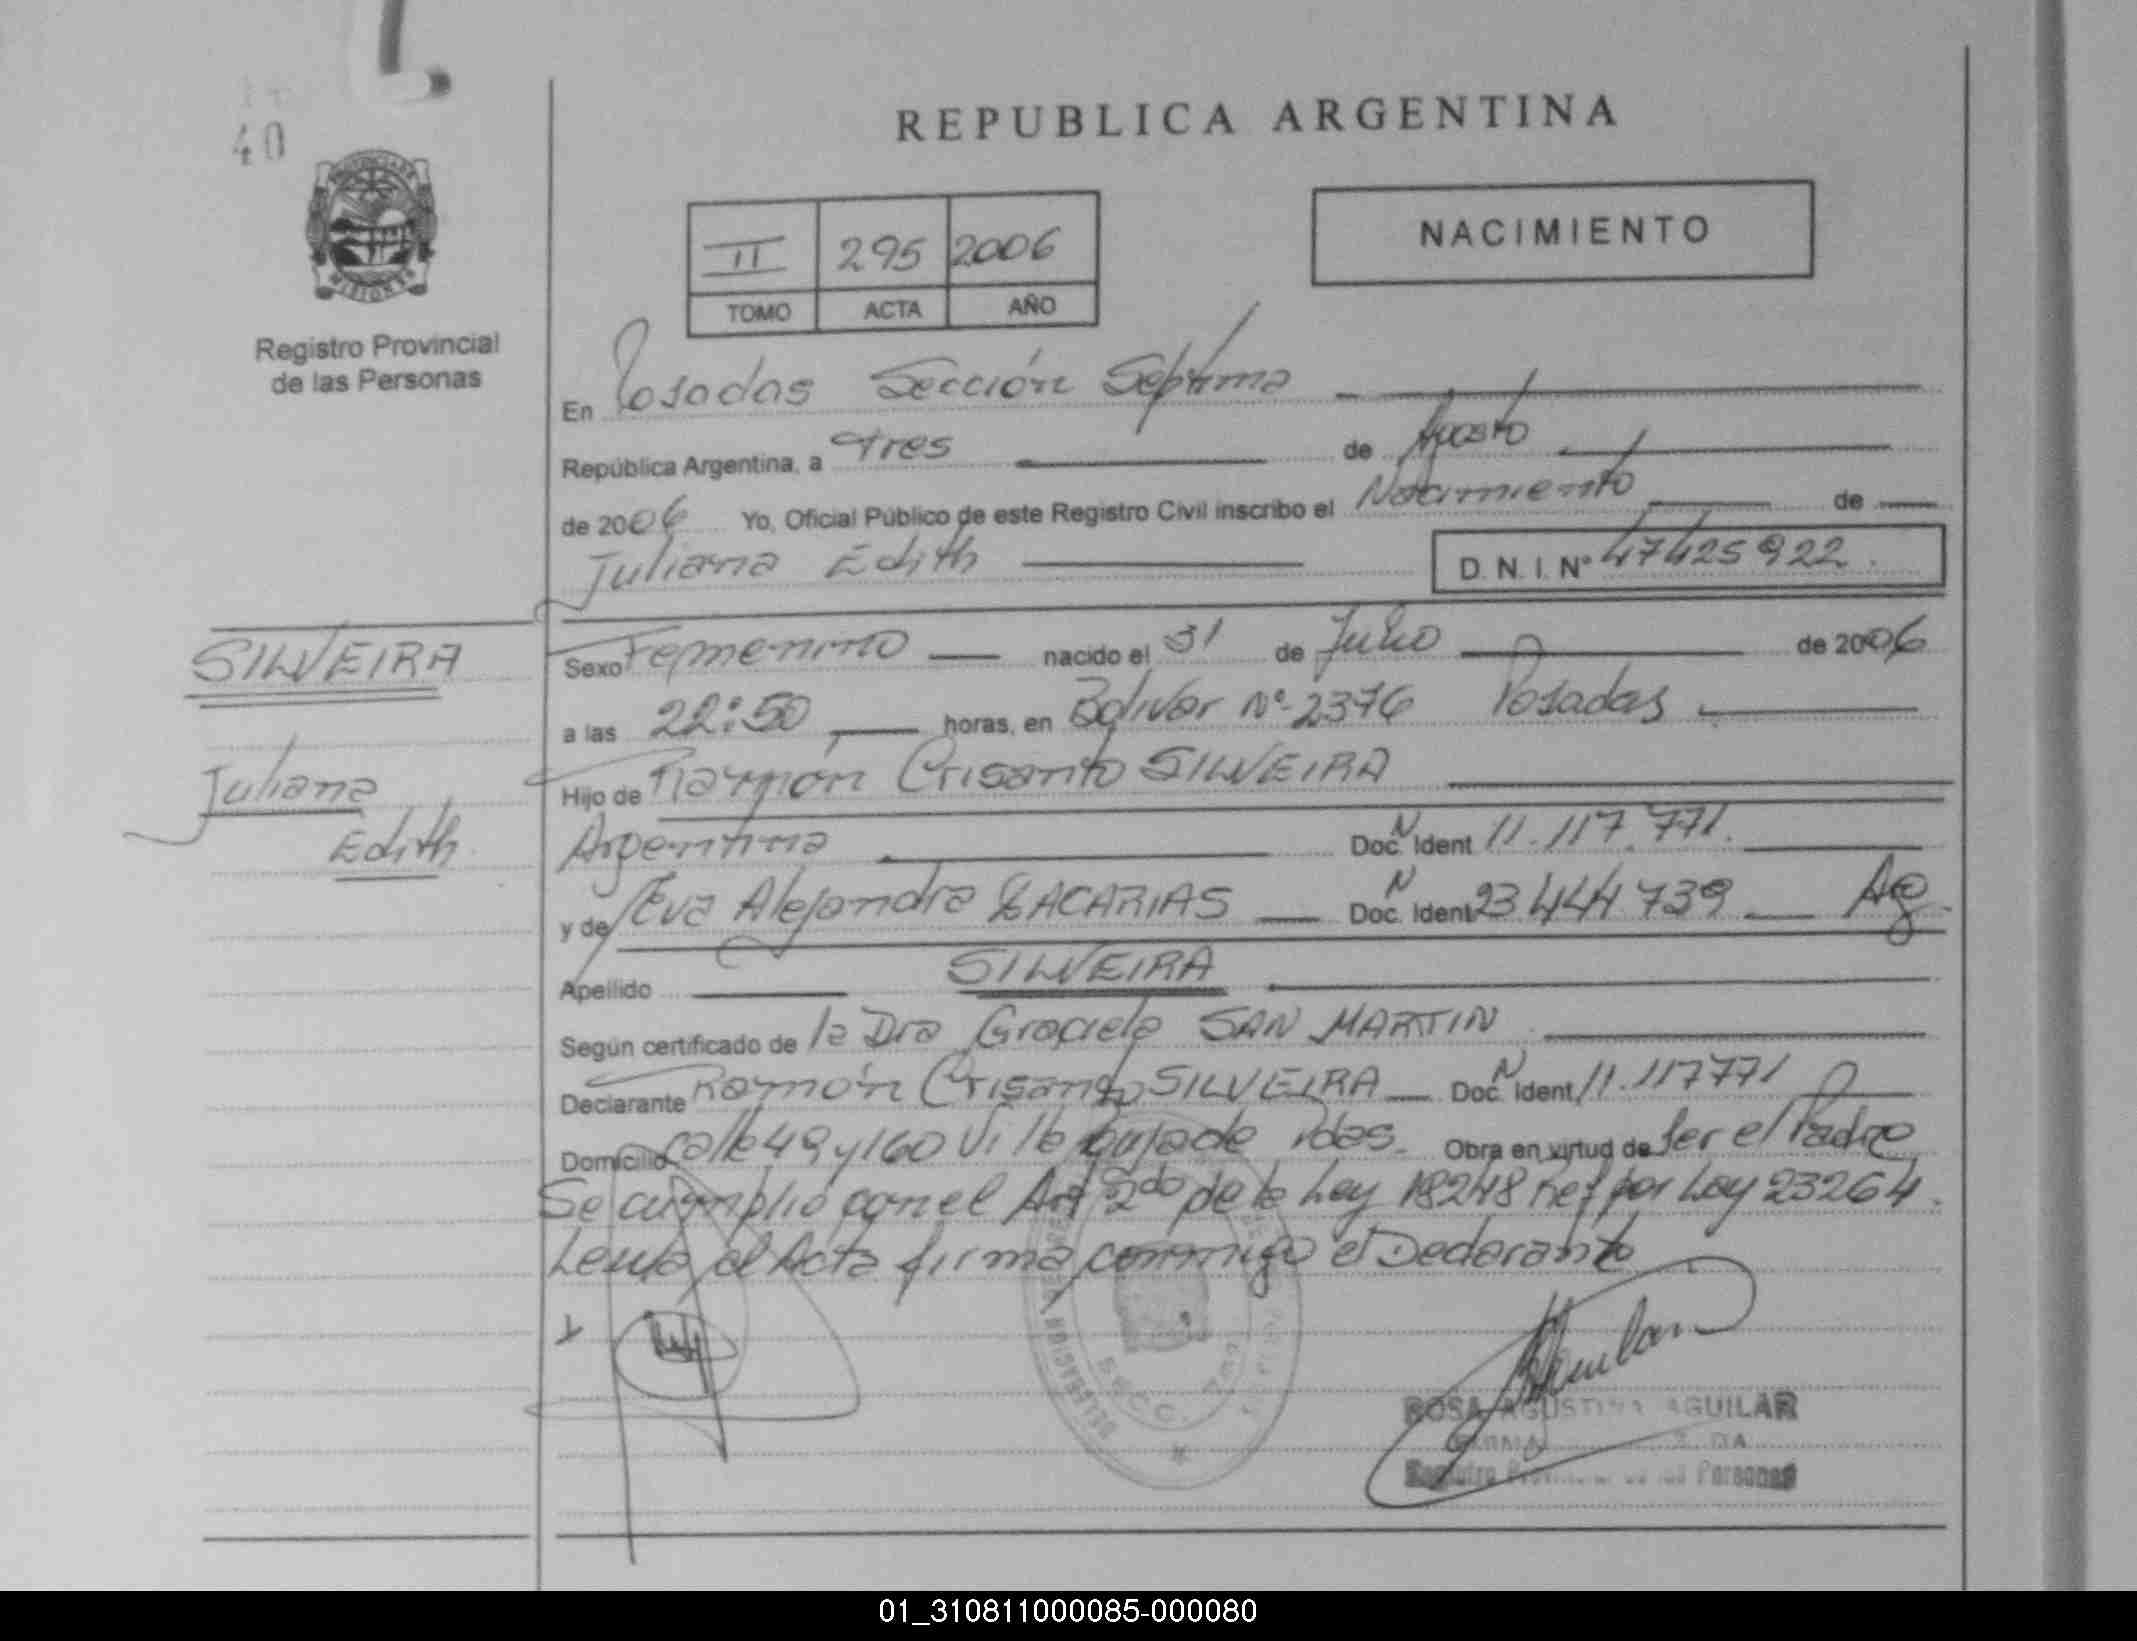 40
REPUBLICA ARGENTINA
II 295 2006
TOMO ACTA AÑO
NACIMIENTO
PROVINCIA DE
MISIONES
Registro Provincial
de las Personas
En Posadas Sección Séptima
República Argentina, a tres de Agosto
de 2006 Yo, Oficial Público de este Registro Civil inscribo el Nacimiento de
Juliana Edith
D.N.I. Nº 47425922
SILVEIRA
Juliana
Edith
Sexo Femenino nacido el 31 de Julio de 2006
a las 22:50 horas, en Bolivar Nº 2376 Posadas
Hijo de Ramón Crisanto SILVEIRA
Argentina Doc. Ident N 11.117.771.
y de Eva Alejandra ZACARIAS Doc. Ident N 23444739 Ag
Apellido SILVEIRA
Según certificado de la Dra Graciela SAN MARTIN
Declarante Ramón Crisanto SILVEIRA Doc. Ident N 11.117771
Domicilio Calle 49 y 160 Pdas. Obra en virtud de Ser el Padre
Se cumplio con el Art 2do de la Ley 18248 Ref por Ley 23264.
Leida el Acta firma conmigo el Declarante
x
SECC. 7ma
ROSA AGUSTINA AGUILAR
Registro Provincial de las Personas
01_310811000085-000080